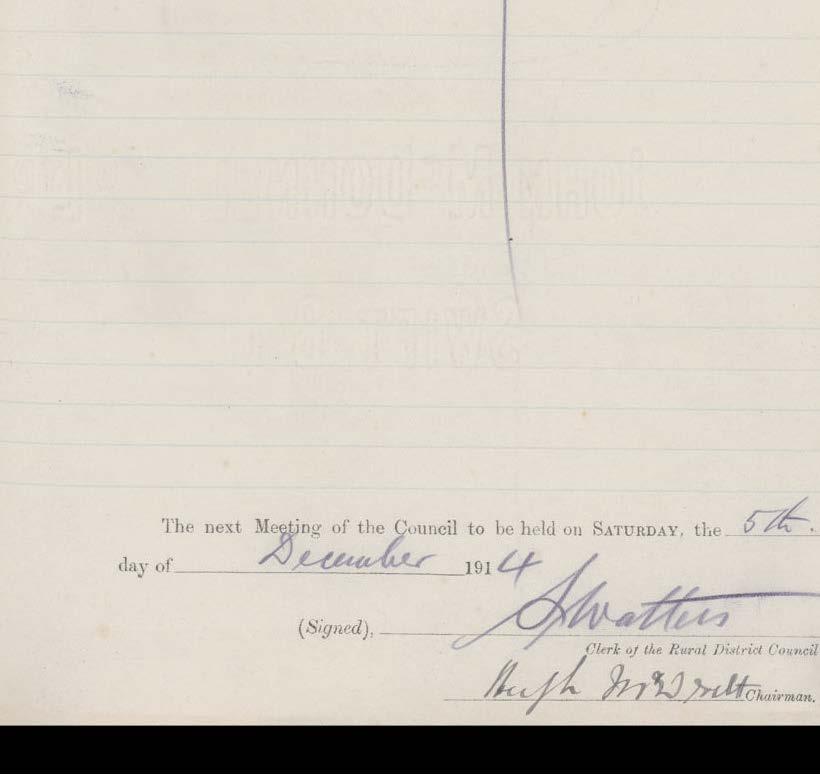 The next Meeting of the Council to be held on SATURDAY, the 5th.
day of December 1914
(Signed), Watters
Clerk of the Rural District Council
Hugh Chairman.